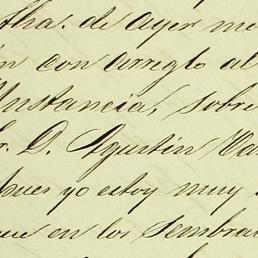 fha. de ayer me
ín con arreglo al
Instancia, sobre
r. D. Agustín Va
pues yo estoy muy
que en los sembra